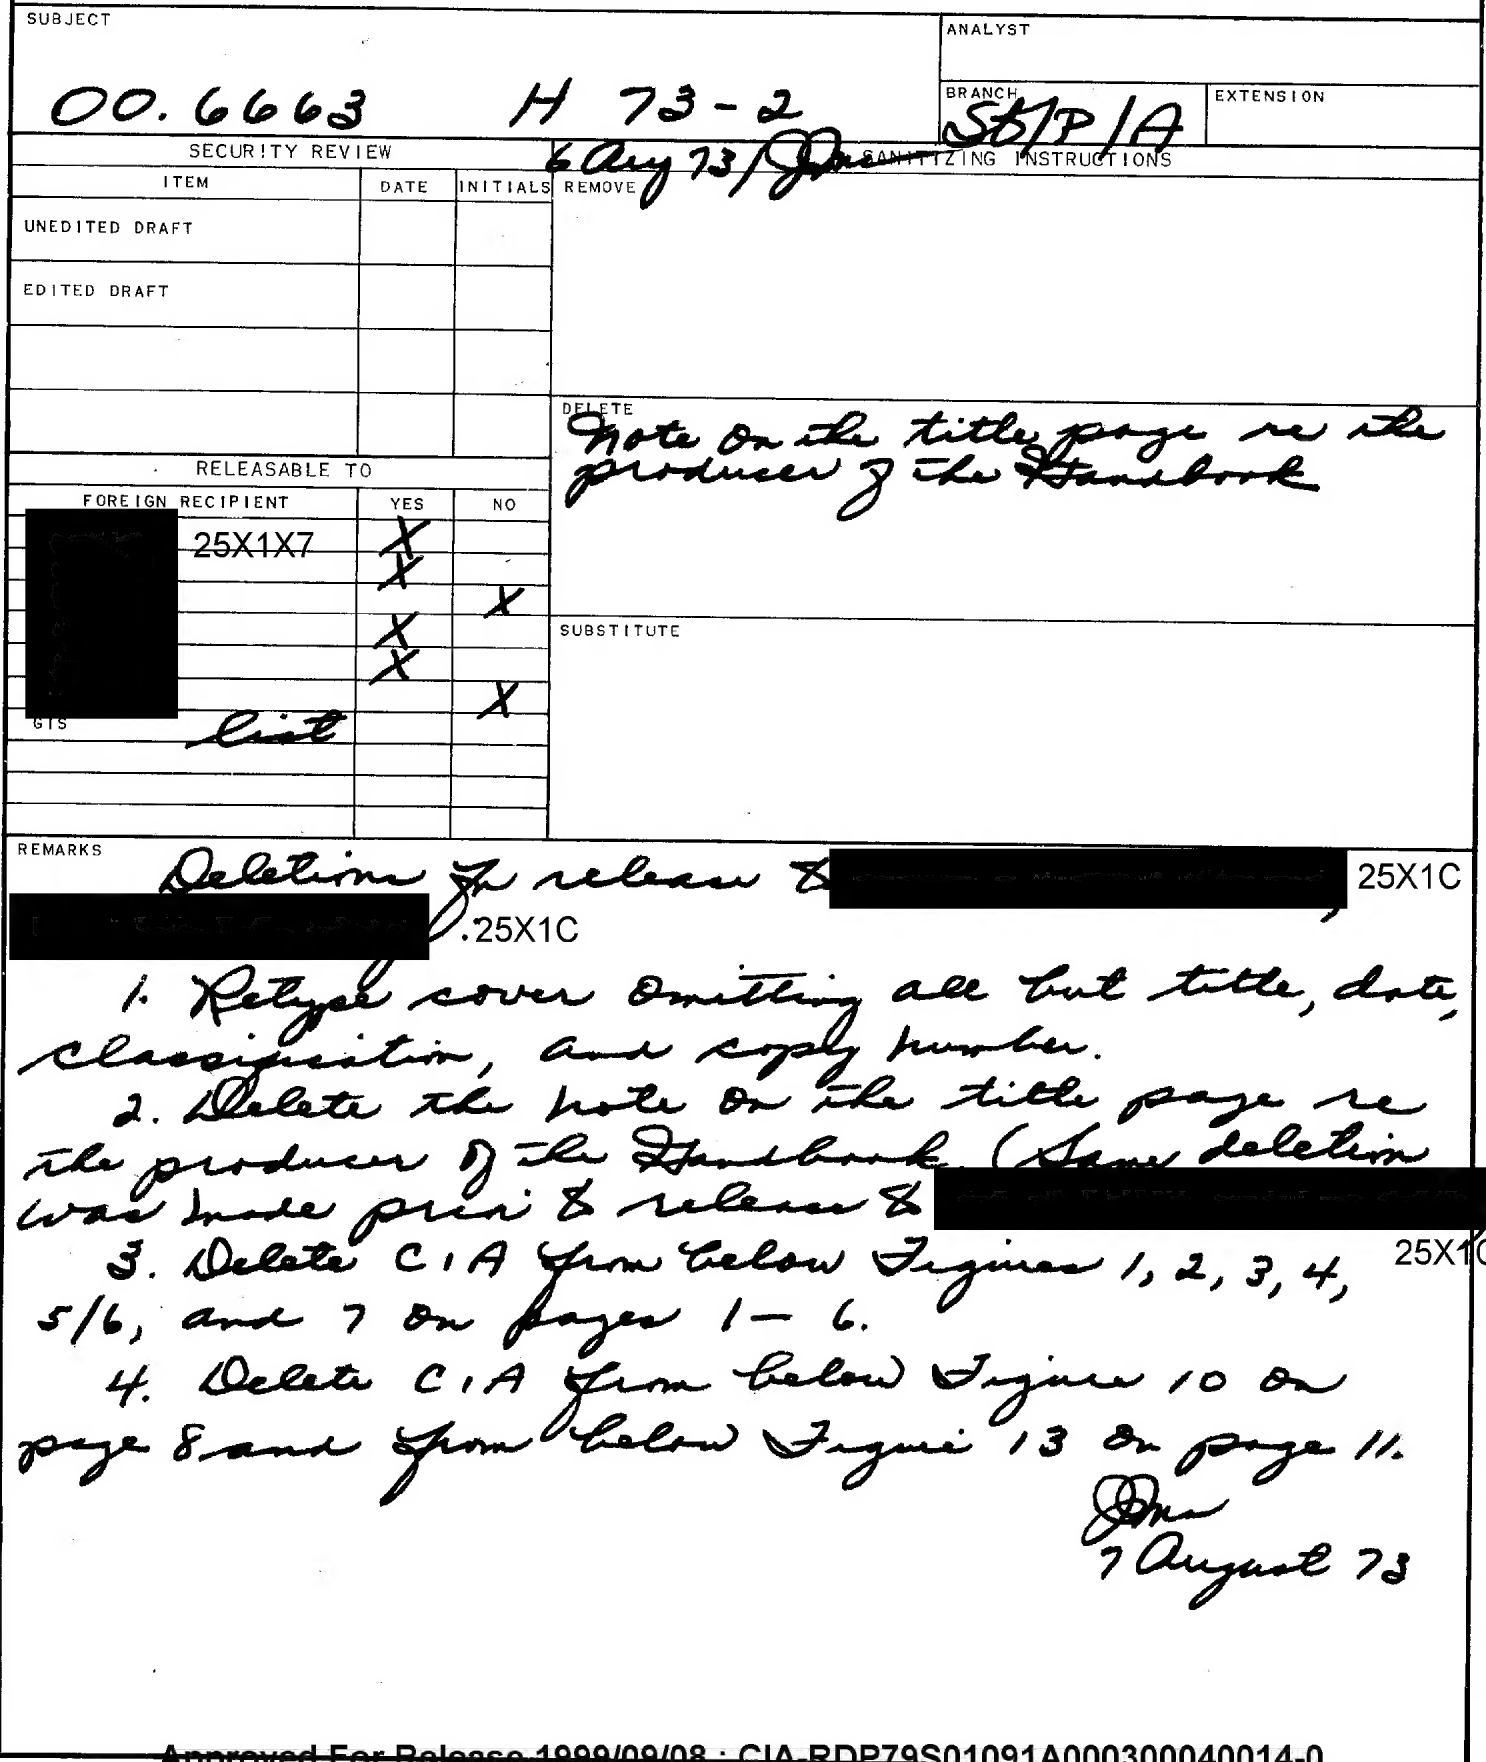 SUBJECT
ANALYST
00.6663 H 73-2
BRANCH
St/P/A
EXTENSION
SECURITY REVIEW
6 Aug 73/
SANITIZING INSTRUCTIONS
ITEM DATE INITIALS
REMOVE
UNEDITED DRAFT
EDITED DRAFT
DELETE
Note on the title page re the
producer of the Handbook
RELEASABLE TO
FOREIGN RECIPIENT YES NO
25X1X7 X
X
X
X
X
X
SUBSTITUTE
GTS list
REMARKS
Deletions for release to 25X1C
.25X1C
1. Retype cover omitting all but title, date,
classification, and copy number.
2. Delete the note on the title page re
the producer of the Handbook. (Same deletion
was made prior to release to
25X1C
3. Delete CIA from below Figures 1, 2, 3, 4,
5/6, and 7 on pages 1 — 6.
4. Delete CIA from below Figure 10 on
page 8 and from below Figure 13 on page 11.
7 August 73
Approved For Release 1999/09/08 : CIA-RDP79S01091A000300040014-0